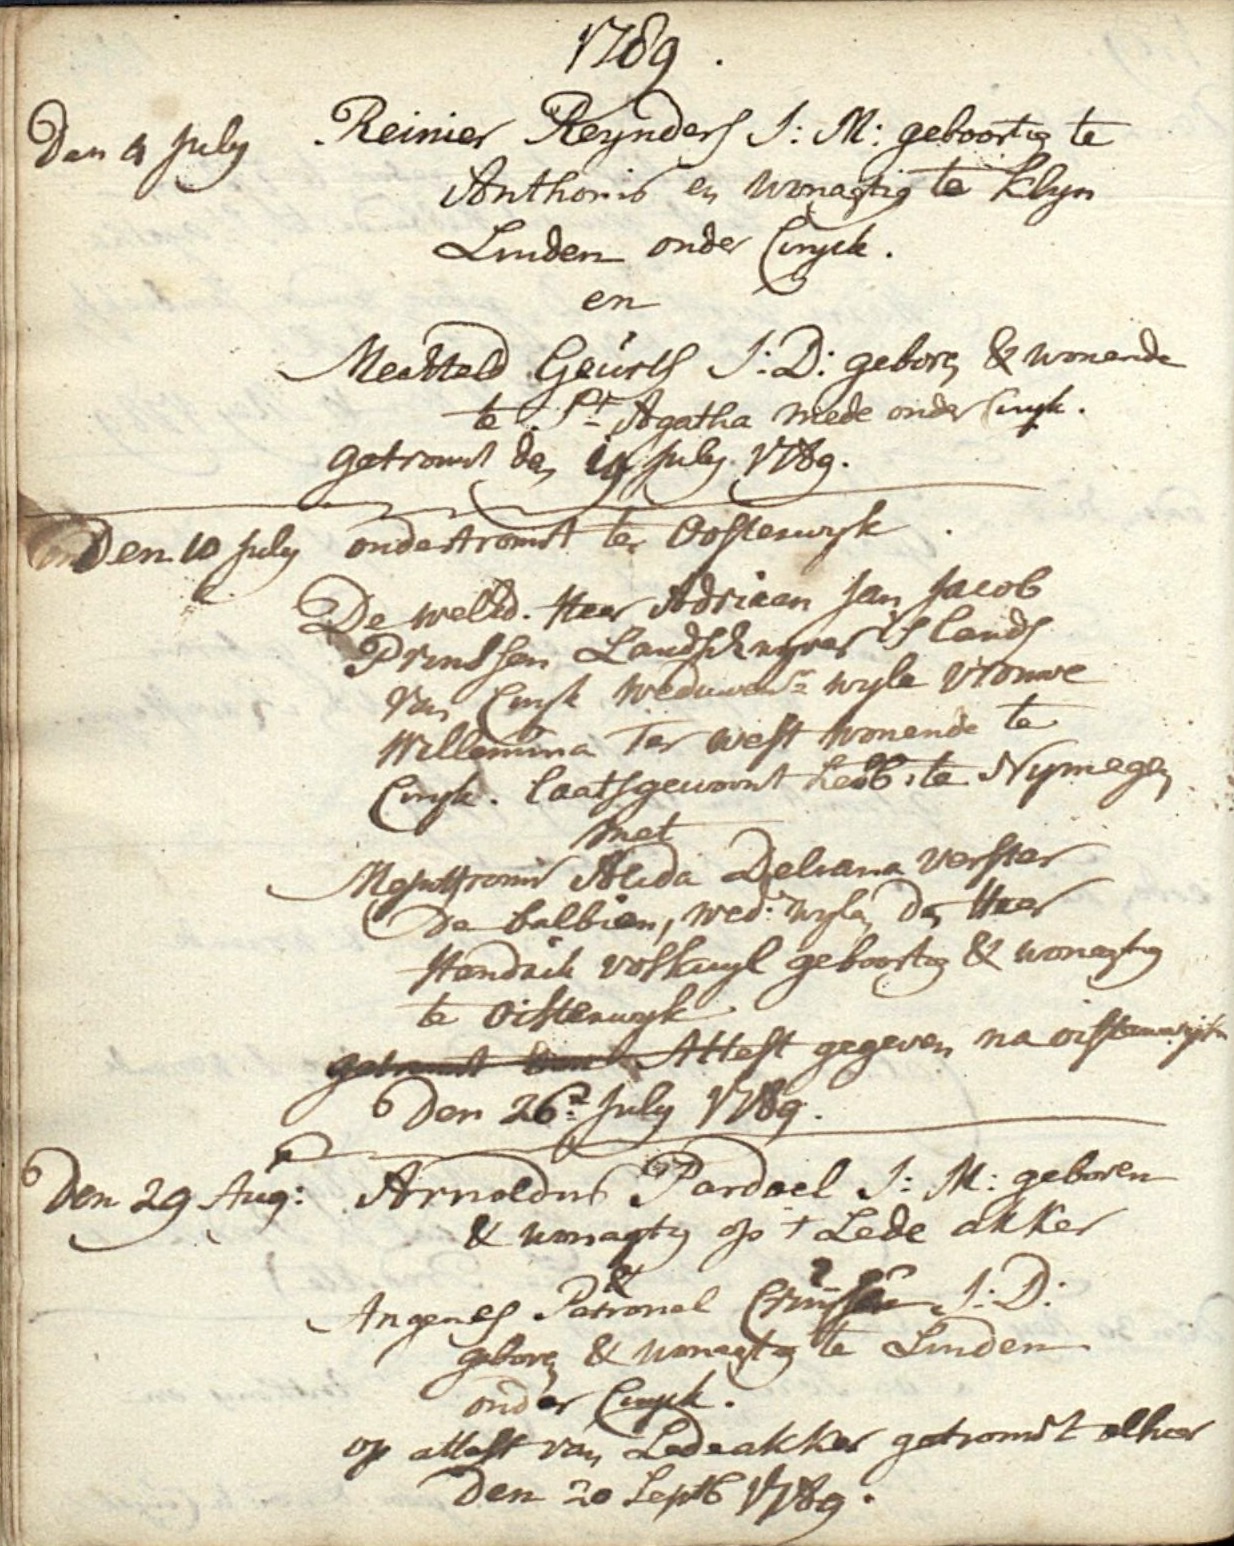 1789.
Den 4 July Reinier Reynders J: M: geboortig te
Anthonis en wonagtig te Klyn
Linden onder Cuyck.
en
Mechteld Geurts J: D: geboren & wonende
te St Agatha mede onder Cuyk.
getrouwt den 19 July 1789.
Den 10 July ondertrouwt te Oosterwyk
De weled. Heer Adriaan Jan Jacob
Prinssen Landschryver 's lands
van Cuyk weduwenr wyle vrouwe
Willemina Ter West wonende te
Cuyk. laatst gewoont hebb. te Nymegen
met
Mejuffrouw Alida Deliana Verster
De balbien, wed: wylen de Heer
Hendrik Volkuyl geboortig & wonagtig
te Oisterwyk
getrouwt den Attest gegeven na oisterwyk
Den 26e July 1789.
Den 29 Aug: Arnoldus Pardoel J: M: geboren
& wonagtig op t Lede akker
&
Angenes Petronel J: D:
geboren & wonagtig te Linden
onder Cuyck.
op attest van Ledeakker getrouwt alhier
Den 20 Septb 1789.